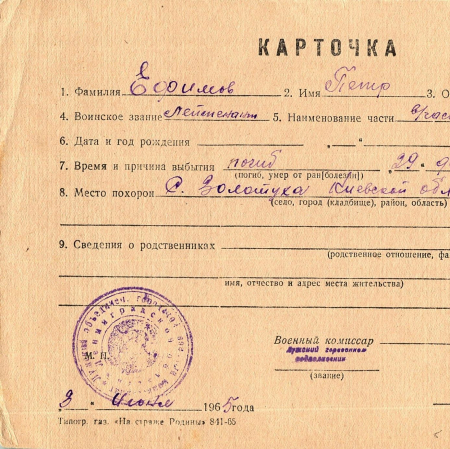 КАРТОЧКА
1. Фамилия Ефимов 2. Имя Петр 3. О
4. Воинское звание Лейтенант 5. Наименование части
6. Дата и год рождения
7. Время и причина выбытия погиб 29
(погиб, умер от ран[болезни])
8. Место похорон С. Золотуха Киевской обл
(село, город (кладбище), район, область)
9. Сведения о родственниках
(родственное отношение, фа
имя, отчество и адрес места жительства)
Военный комиссар
М. П.
(звание)
3 июня 1965 года
Типогр. газ. «На страже Родины» 841-65